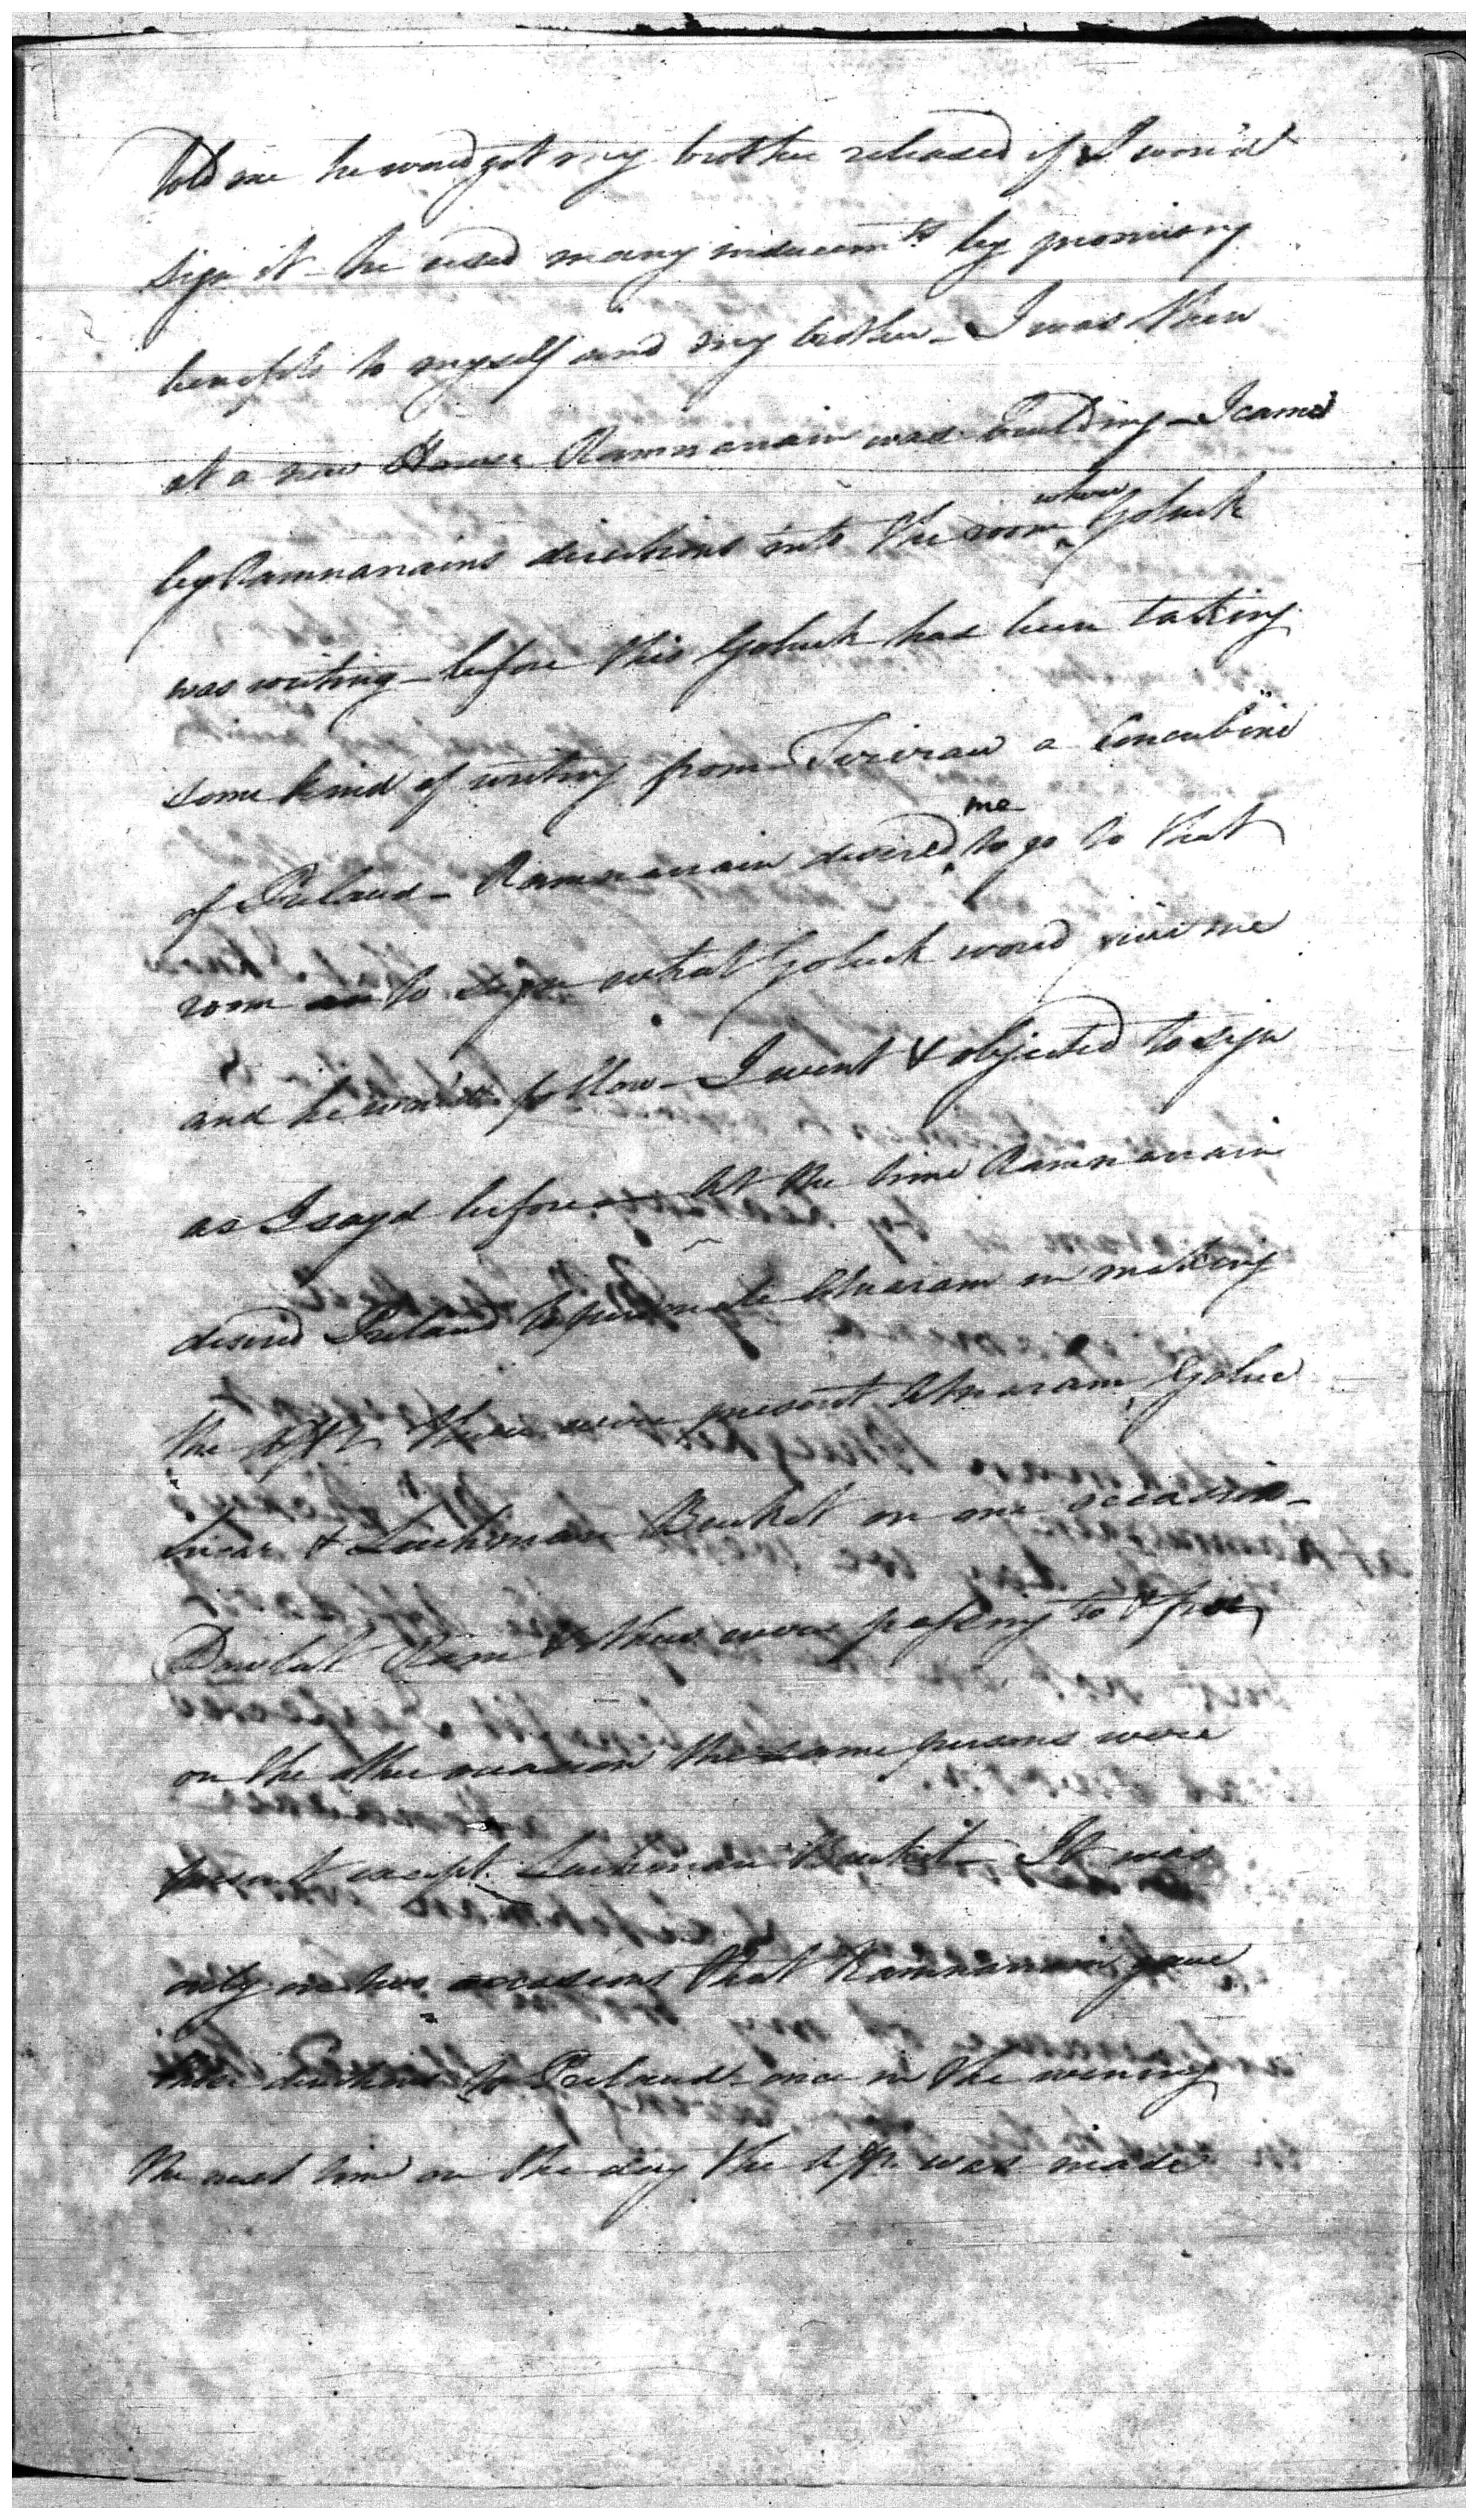 told me he would get my brother released if I wou'd
sign it - he used many inducemts by promising
benefits to myself and my brother - I was then
at a new House Ramnarain was building - I came
by Ramnarains directions into the room where Goluck
was writing - before this Goluck had been taking
some kind of writing from a Concubine
of - Ramnarain desired me to go to that
room to sign what Goluck would give me
and he wou'd follow - I went & objected to sign
as I sayd before - At the time Ramnarain
desired to personate Atmaram in making
the Afft there were present Atmaram, Goluck
Sircar & Lachman on one occasion -
Dowlut Ram & others were passing to & fro
on the other occasion the same persons were
present except Lachman - It was
only on two occasions that Ramnarain gave
these directions to - once in the evening
the next time on the day the Afft was made